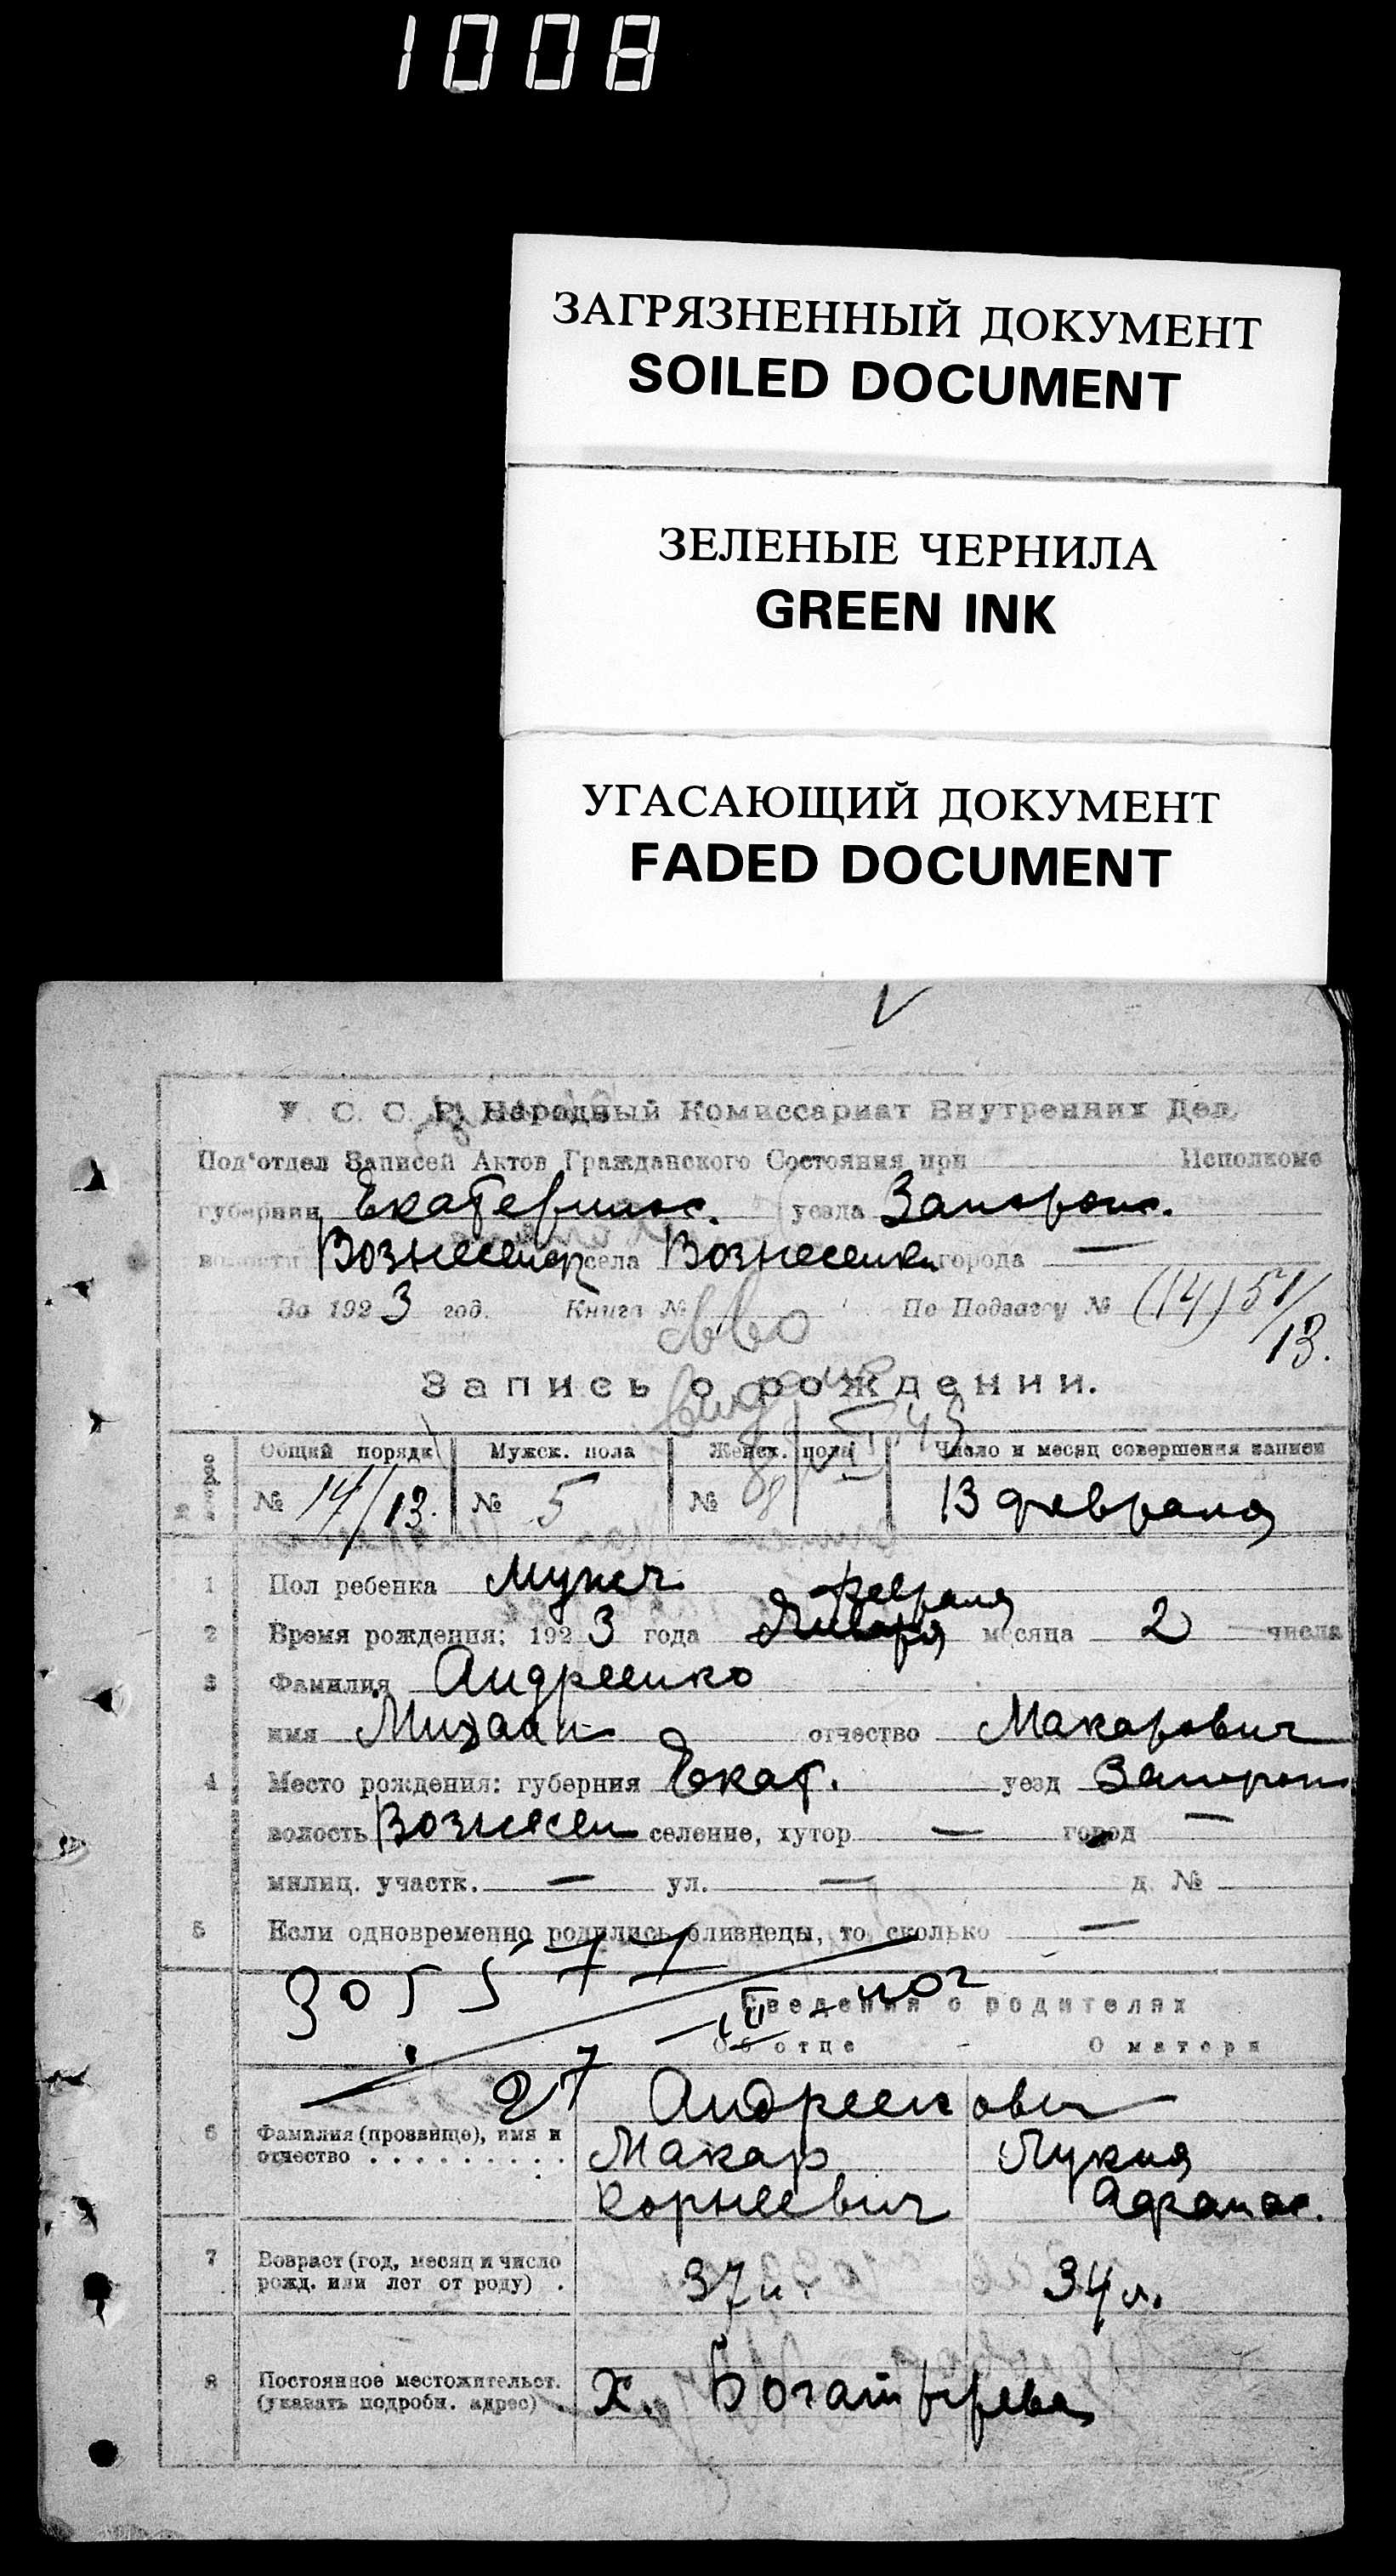 1008
ЗАГРЯЗНЕННЫЙ ДОКУМЕНТ
SOILED DOCUMENT
ЗЕЛЕНЫЕ ЧЕРНИЛА
GREEN INK
УГАСАЮЩИЙ ДОКУМЕНТ
FADED DOCUMENT
У. С. С. Р. Народный Комиссариат Внутренних Дел.
Под'отдел Записей Актов Гражданского Состояния при Исполкоме
губернии Екатеринос. уезда Запорож.
волости Вознесенск села Вознесенки города —
За 1923 год. Книга № По Подзагсу № (14) 51/13.
Запись о рождении.
Общий порядк Мужск. пола Женск. пола Число и месяц совершения записи
№ 14/13. № 5 № 13 февраля
1 Пол ребенка Мужск.
февраля
2 Время рождения: 1923 года Января месяца 2 числа
3 Фамилия Андреенко
имя Михаил отчество Макарович
4 Место рождения: губерния Екат. уезд Запорож
волость Вознесен селение, хутор — город —
милиц. участк. — ул. — д. №
5 Если одновременно родились близнецы, то сколько —
305577
Сведения о родителях
Об отце О матери
27
Андреенковы
6 Фамилия (прозвище), имя и отчество
Макар Лукия
Корнеевич Афанас.
7 Возраст (год, месяц и число рожд. или лет от роду) 37 л. 34 л.
8 Постоянное местожительст. (указать подробн. адрес) Х. Богатырева